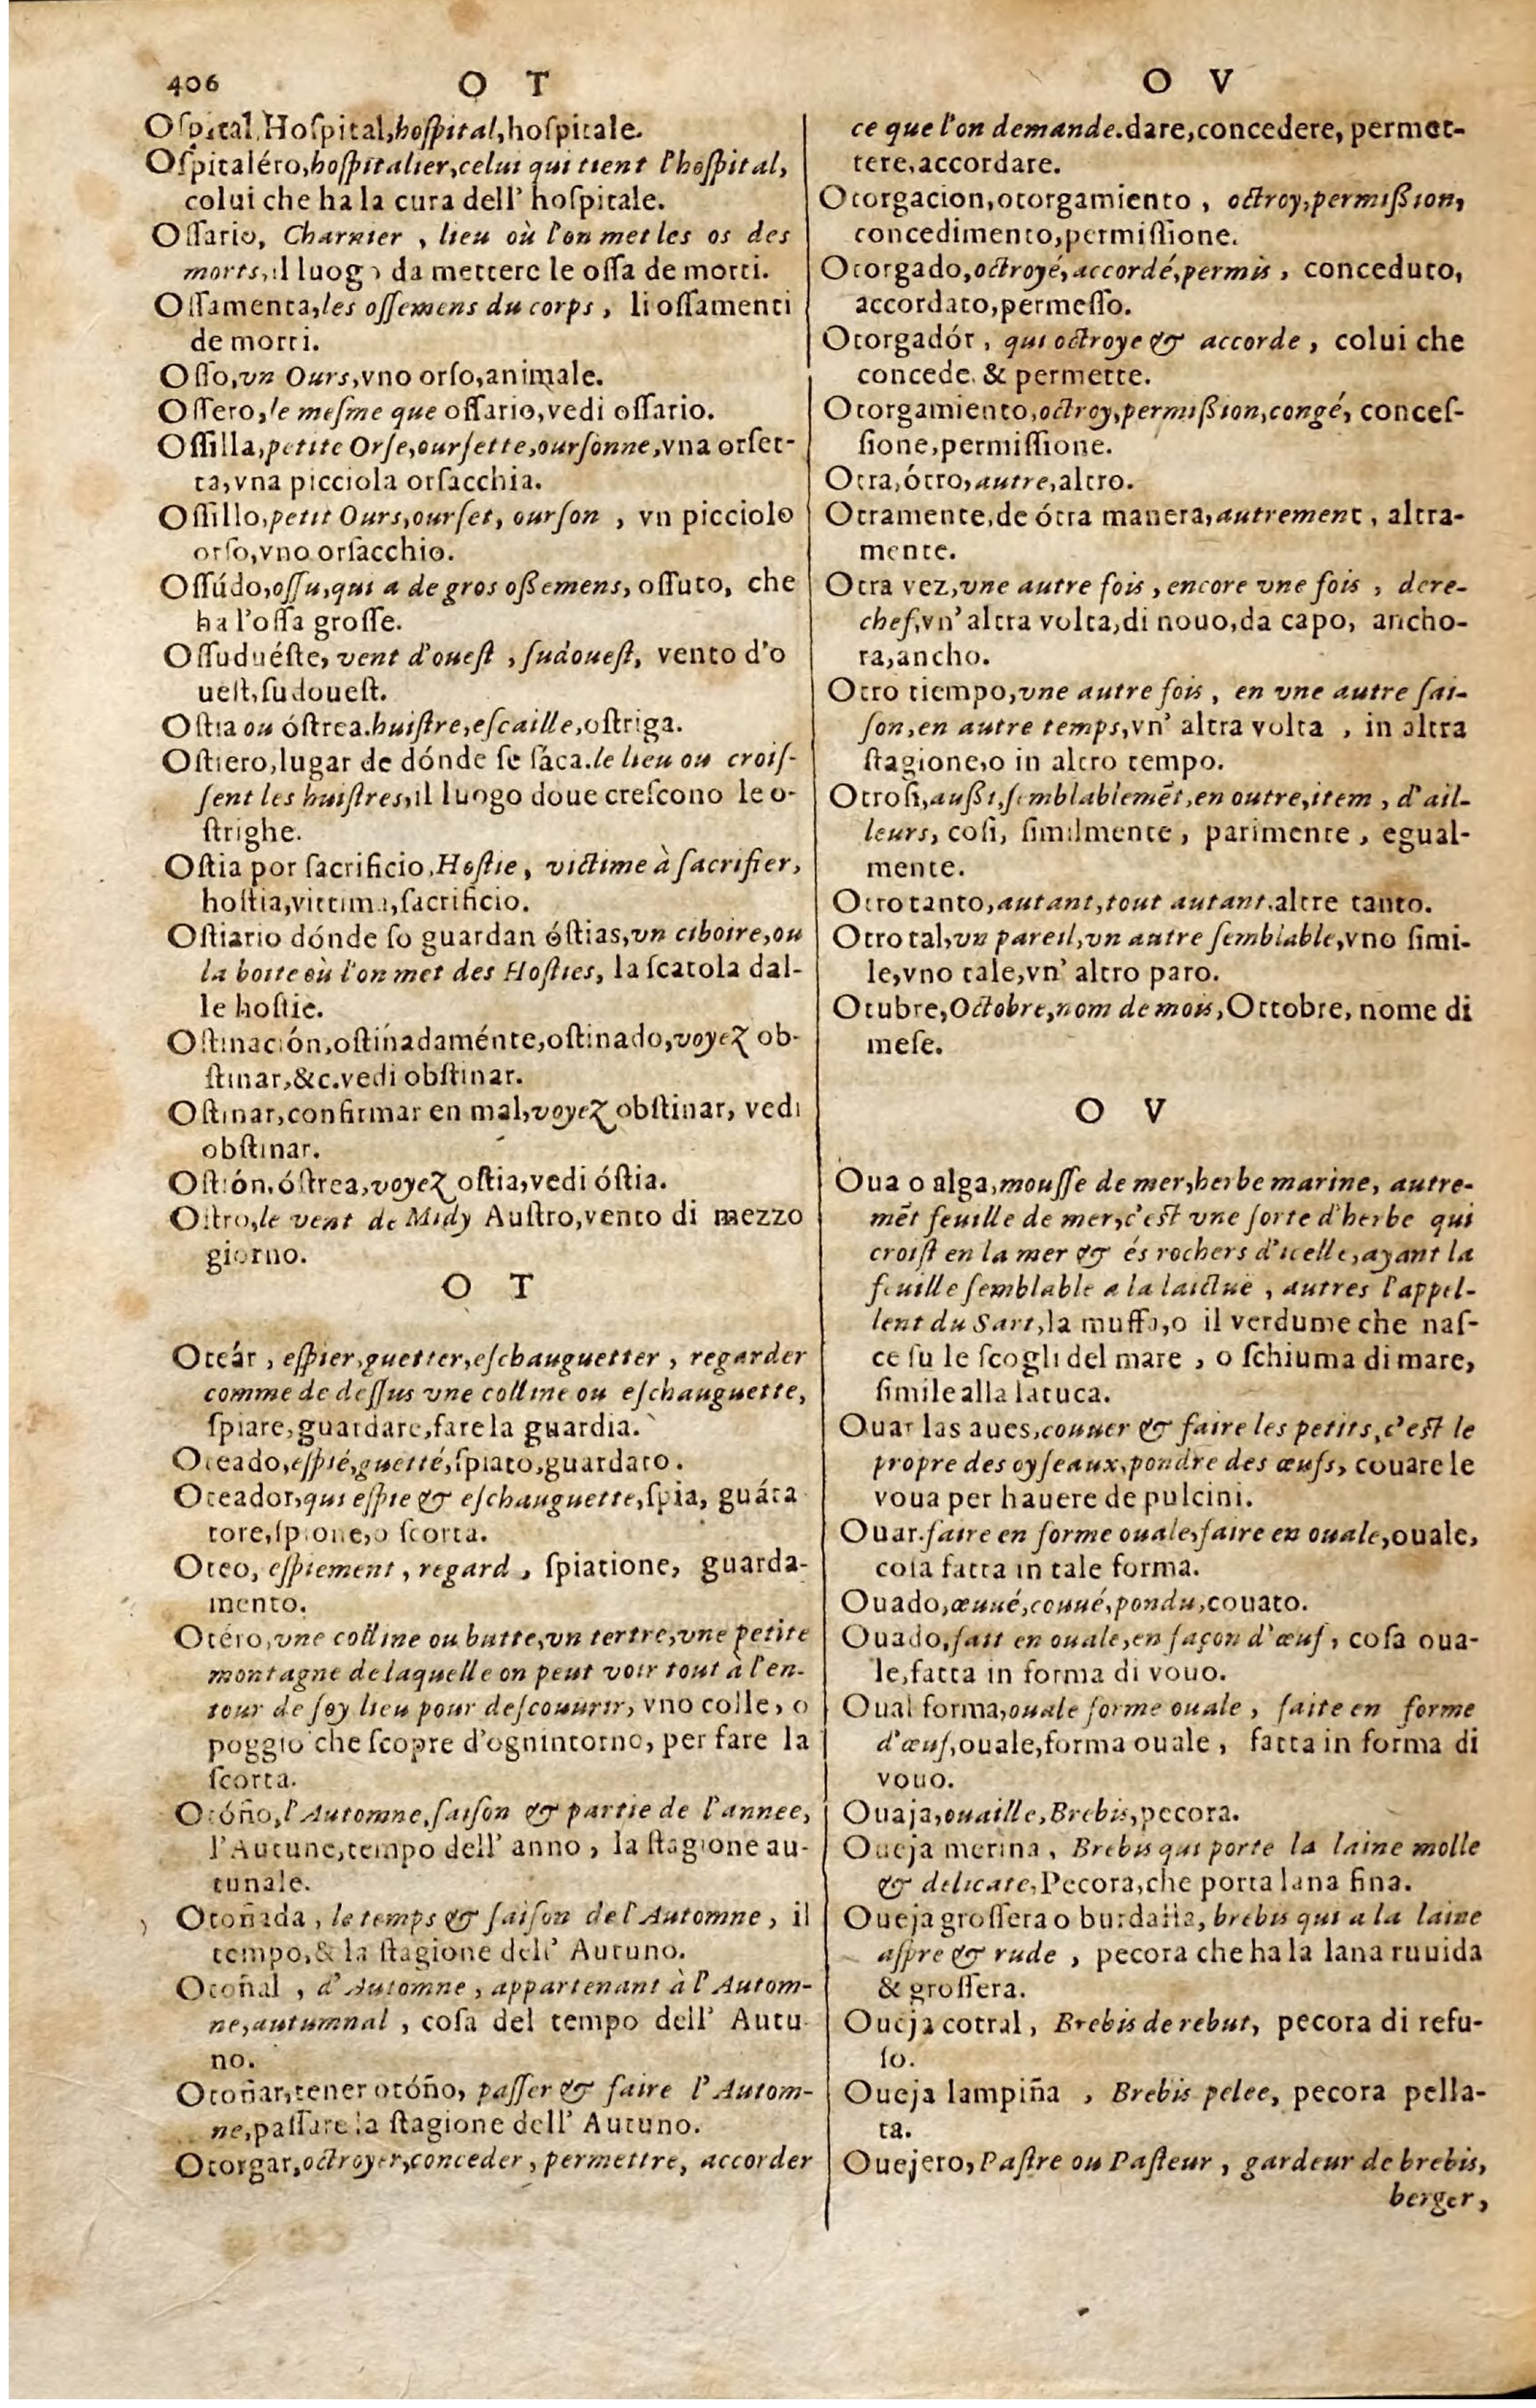 406
O T
Oſpital, Hoſpital,hoſpital,hoſpitale.
Oſpitaléro,hoſpitalier,celui qui tient l'hoſpital,
colui che ha la cura dell' hoſpitale.
Oſſario, Charnier , lieu où l'on met les os des
morts,il luogo da mettere le oſſa de morti.
Oſſamenta,les oſſemens du corps , li oſſamenti
de morti.
Oſſo,vn Ours,vno orſo,animale.
Oſſero,le meſme que oſſario,vedi oſſario.
Oſſilla,petite Orſe,ourſette,ourſonne,vna orſet-
ta,vna picciola orſacchia.
Oſſillo,petit Ours,ourſet, ourſon , vn picciolo
orſo,vno orſacchio.
Oſſúdo,oſſu,qui a de gros oßemens, oſſuto, che
ha l'oſſa groſſe.
Oſſuduéſte, vent d'oueſt , ſudoueſt, vento d'o
ueſt,ſudoueſt.
Oſtia ou óſtrea.huiſtre,eſcaille,oſtriga.
Oſtiero,lugar de dónde ſe ſáca.le lieu ou croiſ-
ſent les huiſtres,il luogo doue creſcono le o-
ſtrighe.
Oſtia por ſacrificio,Hoſtie, victime à ſacrifier,
hoſtia,vittima,ſacrificio.
Oſtiario dónde ſo guardan óſtias,vn ciboire,ou
la boite où l'on met des Hoſties, la ſcatola dal-
le hoſtie.
Oſtinación,oſtinadaménte,oſtinado,voyez ob-
ſtinar,&c.vedi obſtinar.
Oſtinar,confirmar en mal,voyez obſtinar, vedi
obſtinar.
Oſtión,óſtrea,voyez oſtia,vedi óſtia.
Oſtro,le vent de Midy Auſtro,vento di mezzo
giorno.
O T
Oteár , eſpier,guetter,eſchauguetter , regarder
comme de deſſus vne colline ou eſchauguette,
ſpiare,guardare,fare la guardia.
Oteado,eſpié,guetté,ſpiato,guardato.
Oteador,qui eſpie & eſchauguette,ſpia, guáta
tore,ſpione,o ſcorta.
Oteo, eſpiement , regard , ſpiatione, guarda-
mento.
Otéro,vne colline ou butte,vn tertre,vne petite
montagne de laquelle on peut voir tout à l'en-
tour de ſoy lieu pour deſcouurir, vno colle, o
poggio che ſcopre d'ognintorno, per fare la
ſcorta.
Otóño,l'Automne,ſaiſon & partie de l'annee,
l'Autune,tempo dell' anno , la ſtagione au-
tunale.
Otoñada , le temps & ſaiſon de l'Automne , il
tempo,& la ſtagione dell' Autuno.
Otoñal , d'Automne , appartenant à l'Autom-
ne,autumnal , coſa del tempo dell' Autu
no.
Otoñar,tener otóño, paſſer & faire l'Autom-
ne,paſſare la ſtagione dell' Autuno.
Otorgar,octroyer,conceder , permettre, accorder
O V
ce que l'on demande.dare,concedere, permet-
tere,accordare.
Otorgacion,otorgamiento , octroy,permißion,
concedimento,permiſſione.
Otorgado,octroyé,accordé,permis , conceduto,
accordato,permeſſo.
Otorgadór , qui octroye & accorde , colui che
concede. & permette.
Otorgamiento,octroy,permißion,congé, conceſ-
ſione,permiſſione.
Otra,ótro,autre,altro.
Otramente,de ótra manera,autrement , altra-
mente.
Otra vez,vne autre fois , encore vne fois , dere-
chef,vn' altra volta,di nouo,da capo, ancho-
ra,ancho.
Otro tiempo,vne autre fois , en vne autre ſai-
ſon,en autre temps,vn' altra volta , in altra
ſtagione,o in altro tempo.
Otroſi,außi,ſemblablemēt,en outre,item , d'ail-
leurs, coſi, ſimilmente , parimente , egual-
mente.
Otro tanto,autant,tout autant.altre tanto.
Otro tal,vn pareil,vn autre ſemblable,vno ſimi-
le,vno tale,vn' altro paro.
Otubre,Octobre,nom de mois,Ottobre, nome di
meſe.
O V
Oua o alga,mouſſe de mer,herbe marine, autre-
mēt feuille de mer,c'est vne ſorte d'herbe qui
croiſt en la mer & és rochers d'icelle,ayant la
feuille ſemblable a la laictue , autres l'appel-
lent du Sart,la muffa,o il verdume che naſ-
ce ſu le ſcogli del mare , o ſchiuma di mare,
ſimile alla latuca.
Ouar las aues,couuer & faire les petits,c'est le
propre des oyſeaux,pondre des œufs, couare le
voua per hauere de pulcini.
Ouar.faire en forme ouale,faire en ouale,ouale,
coſa fatta in tale forma.
Ouado,œuué,couué,pondu,couato.
Ouado,fait en ouale,en façon d'œuf, coſa oua-
le,fatta in forma di vouo.
Oual forma,ouale forme ouale , faite en forme
d'œuf,ouale,forma ouale , fatta in forma di
vouo.
Ouaja,ouaille,Brebis,pecora.
Oueja merina , Brebis qui porte la laine molle
& delicate,Pecora,che porta lana fina.
Oueja groſſera o burdalla, brebis qui a la laine
aſpre & rude , pecora che ha la lana ruuida
& groſſera.
Oueja cotral, Brebis de rebut, pecora di refu-
ſo.
Oueja lampiña , Brebis pelee, pecora pella-
ta.
Ouejero, Paſtre ou Paſteur , gardeur de brebis,
berger,